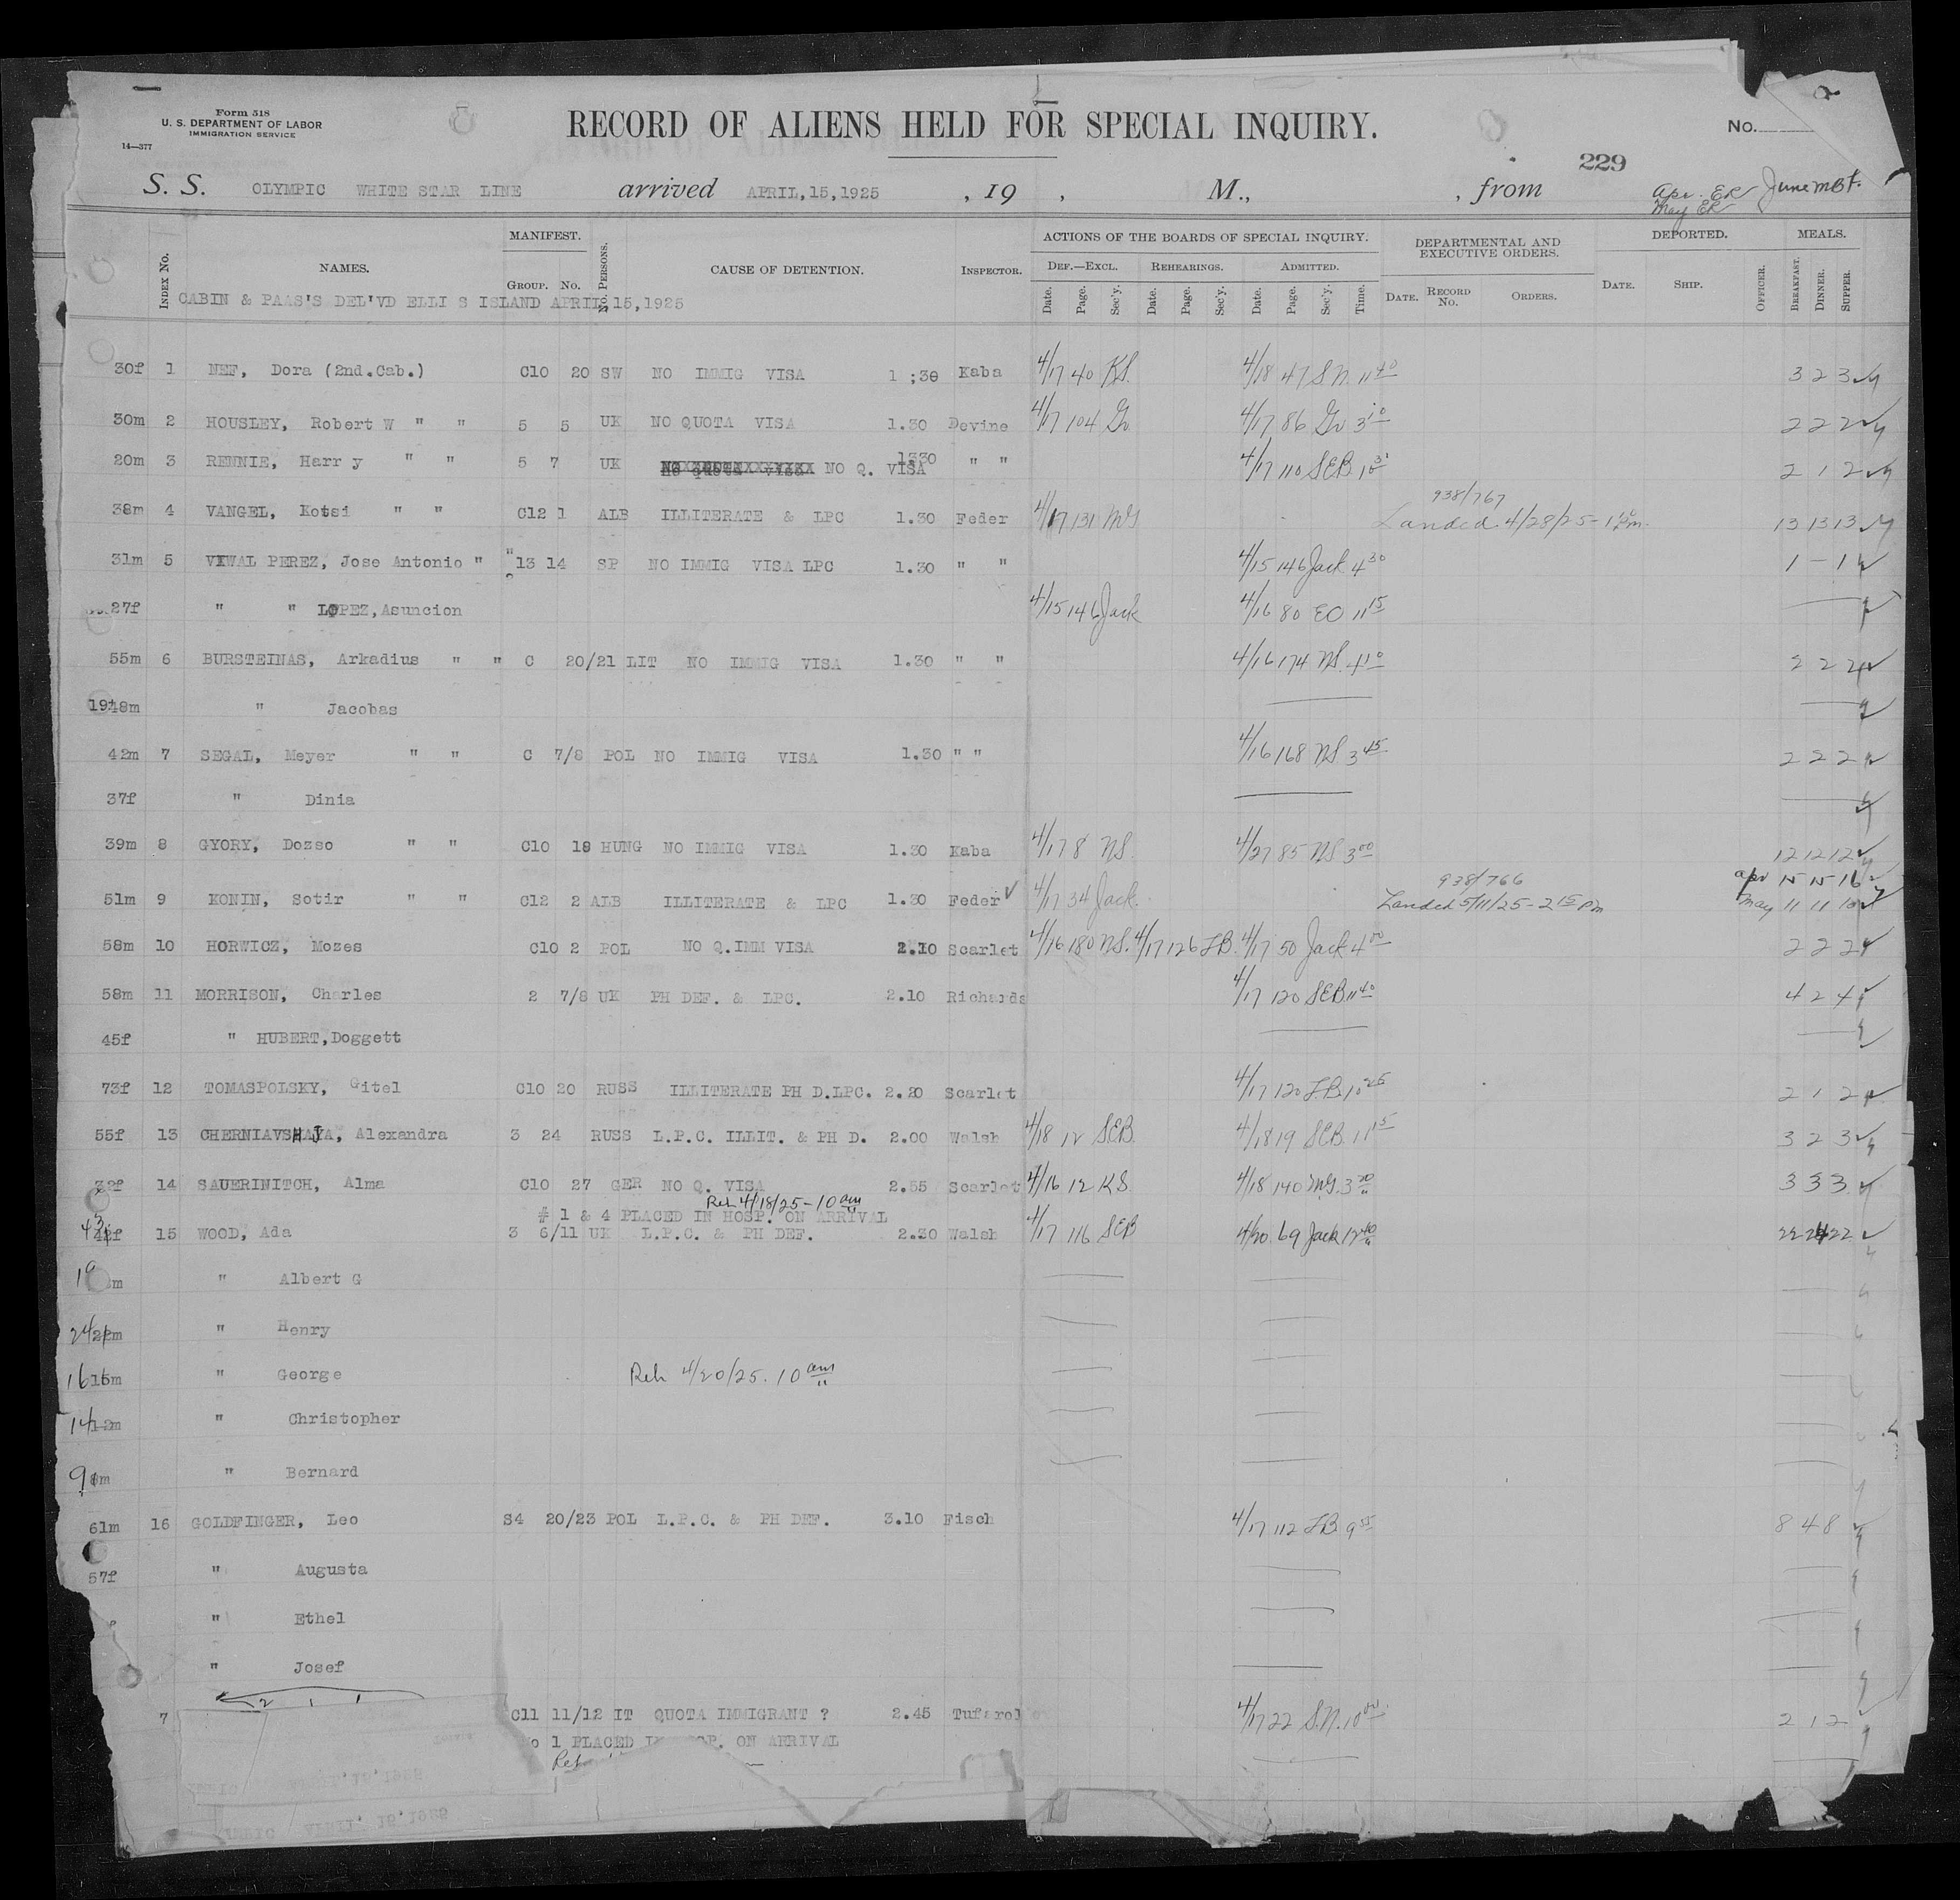 Form 518
U. S. DEPARTMENT OF LABOR
IMMIGRATION SERVICE
14—377
RECORD OF ALIENS HELD FOR SPECIAL INQUIRY.
No.
229
S. S. OLYMPIC WHITE STAR LINE arrived APRIL,15,1925 , 19 , M., , from
Apr. ER June MBt.
May ER
INDEX NO. NAMES. MANIFEST. GROUP. NO. NO. PERSONS. CAUSE OF DETENTION. INSPECTOR. ACTIONS OF THE BOARDS OF SPECIAL INQUIRY. DEPARTMENTAL AND EXECUTIVE ORDERS. DEPORTED. MEALS.
DEF.—EXCL. REHEARINGS. ADMITTED.
Date. Page. Sec'y. Date. Page. Sec'y. Date. Page. Sec'y. Time. DATE. RECORD NO. ORDERS. DATE. SHIP. OFFICER. BREAKFAST. DINNER. SUPPER.
CABIN & PAAS'S DEL'VD ELLI S ISLAND APRIL 15,1925
30f 1 NEF, Dora (2nd.Cab.) C10 20 SW NO IMMIG VISA 1 ;30 Kaba 4/17 40 KS. 4/18 47 S.N. 11 40 3 2 3
30m 2 HOUSLEY, Robert W " " 5 5 UK NO QUOTA VISA 1.30 Devine 4/17 104 Gv 4/17 86 Gv 3 10 2 2 2
20m 3 RENNIE, Harr y " " 5 7 UK NO Q. VISA 1330 " " 4/17 110 SEB 2 1 2
938/767
38m 4 VANGEL, Kotsi " " C12 1 ALB ILLITERATE & LPC 1.30 Feder 4/17 131 MG Landed 4/28/25 - 13 13 13
31m 5 VIWAL PEREZ, Jose Antonio " " 13 14 SP NO IMMIG VISA LPC 1.30 " " 4/15 146 Jack 4 30 1 - 1
27f " " LOPEZ,Asuncion 4/15 146 Jack 4/16 80 EO 11 15
55m 6 BURSTEINAS, Arkadius " " C 20/21 LIT NO IMMIG VISA 1.30 " " 4/16 174 NS. 4 10 2 2 2
19 18m " Jacobas
42m 7 SEGAL, Meyer " " C 7/8 POL NO IMMIG VISA 1.30 " " 4/16 168 NS 3 45 2 2 2
37f " Dinia
39m 8 GYORY, Dozso " " C10 19 HUNG NO IMMIG VISA 1.30 Kaba 4/17 8 NS. 4/27 85 NS 3 00 12 12 12
938/766 apr 15 15 16
51m 9 KONIN, Sotir " " C12 2 ALB ILLITERATE & LPC 1.30 Feder 4/17 34 Jack. Landed 5/11/25 - 2 15 pm May 11 11 10
58m 10 HORWICZ, Mozes C10 2 POL NO Q.IMM VISA 2.10 Scarlet 4/16 180 NS. 4/17 126 LB. 4/17 50 Jack 4 00 2 2 2
58m 11 MORRISON, Charles 2 7/8 UK PH DEF. & LPC. 2.10 Richards 4/17 120 SEB 11 40 4 2 4
45f " HUBERT,Doggett
73f 12 TOMASPOLSKY, Gitel C10 20 RUSS ILLITERATE PH D.LPC. 2.20 Scarlet 4/17 120 LB. 10 25 2 1 2
55f 13 CHERNIAVSHAJA, Alexandra 3 24 RUSS L.P.C. ILLIT. & PH D. 2.00 Walsh 4/18 12 SEB. 4/18 19 SEB. 11 15 3 2 3
32f 14 SAUERINITCH, Alma C10 27 GER NO Q. VISA 2.55 Scarlet 4/16 12 KS 4/18 140 MG. 3 20 3 3 3
Reh 4/18/25 - 10 am
# 1 & 4 PLACED IN HOSP. ON ARRIVAL
43 42f 15 WOOD, Ada 3 6/11 UK L.P.C. & PH DEF. 2.30 Walsh 4/17 116 SEB 4/20 69 Jack 12 40 22 24 22
19 m " Albert G
24 22m " Henry
16 15m " George Reh 4/20/25. 10 am
14 12m " Christopher
9 8m " Bernard
61m 16 GOLDFINGER, Leo S4 20/23 POL L.P.C. & PH DEF. 3.10 Fisch 4/17 112 LB. 9 55 8 4 8
57f " Augusta
" Ethel
" Josef
2 1 1
7 C11 11/12 IT QUOTA IMMIGRANT ? 2.45 Tufarol 4/17 22 S.N. 10 00 2 1 2
o 1 PLACED IN SP. ON ARRIVAL
Reh